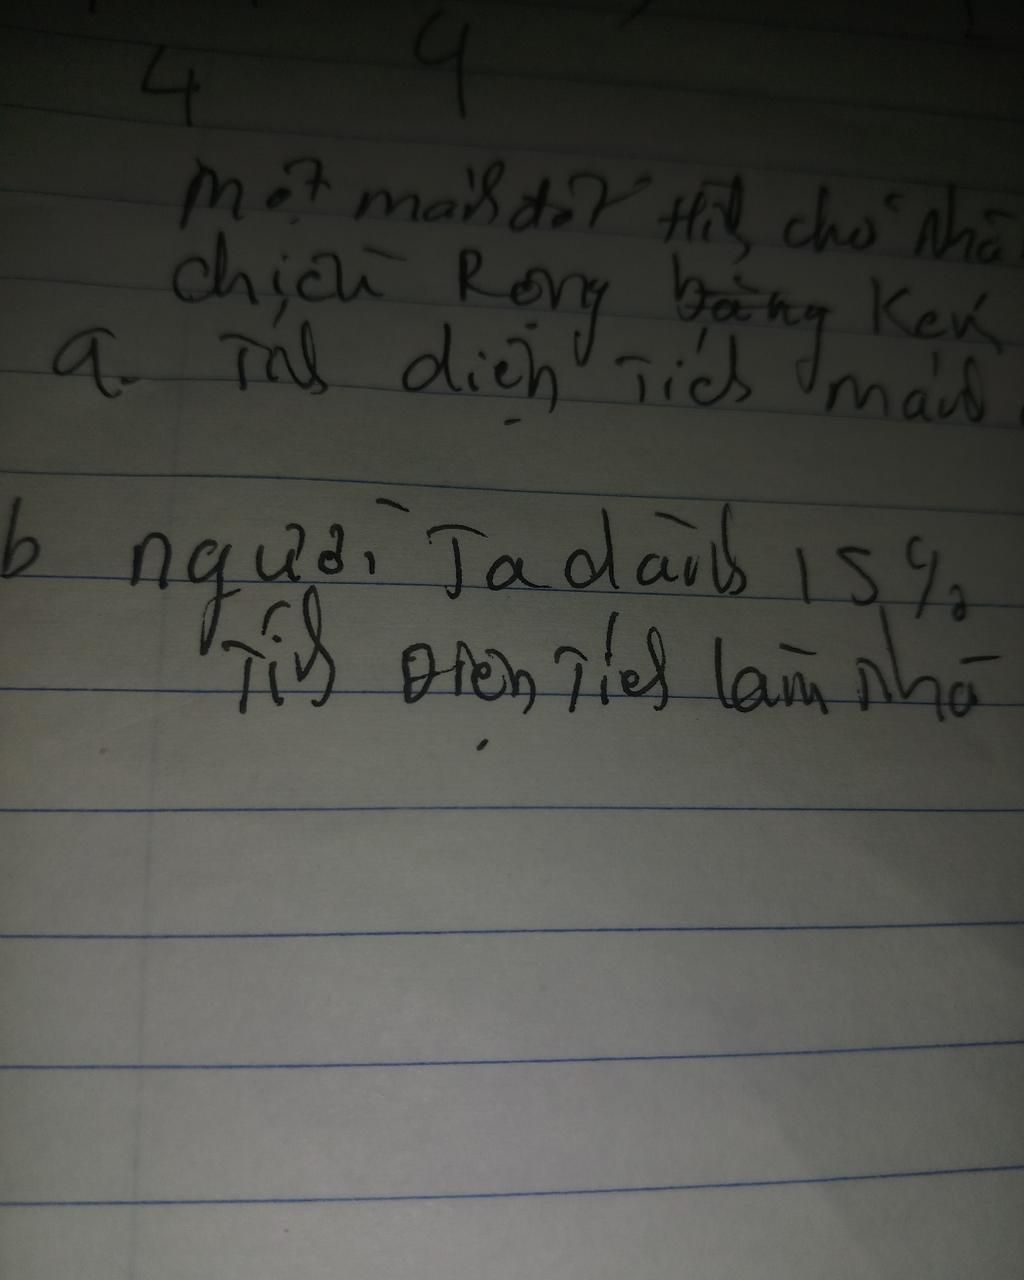 4 9
một mảnh đất hình chữ nhậ
chiều Rộng bằng Kén
a. Tính diện Tích mảnh
b người Ta dành 15%
Tính Diện Tích làm nhà